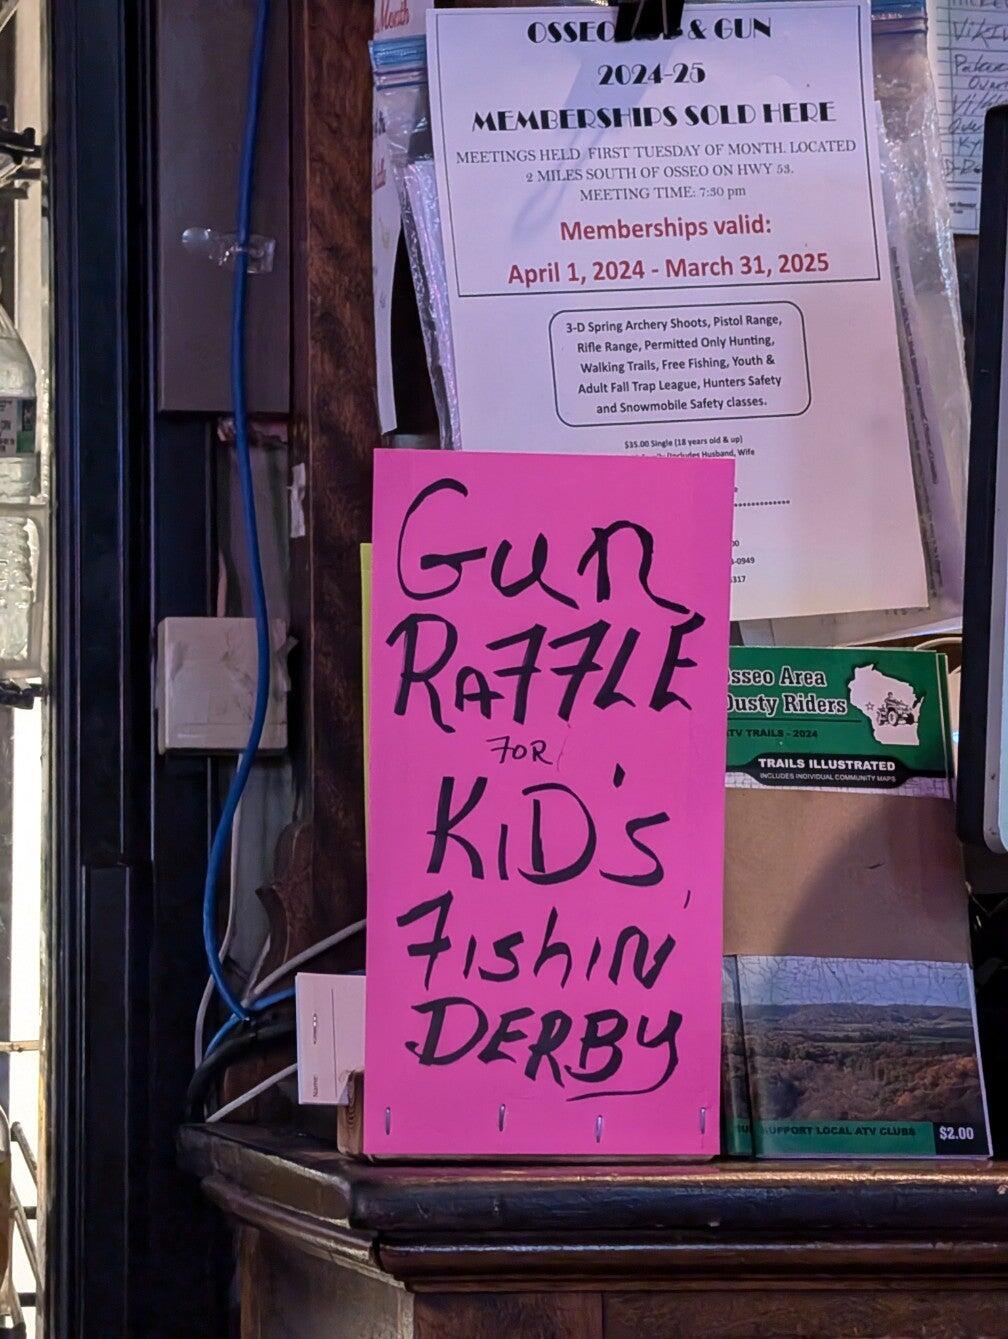 Month
OSSEO & GUN
2024-25
MEMBERSHIPS SOLD HERE
MEETINGS HELD FIRST TUESDAY OF MONTH. LOCATED
2 MILES SOUTH OF OSSEO ON HWY 53.
MEETING TIME: 7:30 pm
Memberships valid:
April 1, 2024 - March 31, 2025
3-D Spring Archery Shoots, Pistol Range,
Rifle Range, Permitted Only Hunting,
Walking Trails, Free Fishing, Youth &
Adult Fall Trap League, Hunters Safety
and Snowmobile Safety classes.
$35.00 Single (18 years old & up)
Husband, Wife
-0949
GUN
RAFFLE
FOR
KID'S
FISHIN'
DERBY
Name
sseo Area
Dusty Riders
TV TRAILS - 2024
TRAILS ILLUSTRATED
INCLUDES INDIVIDUAL COMMUNITY MAPS
SUPPORT LOCAL ATV CLUBS
$2.00